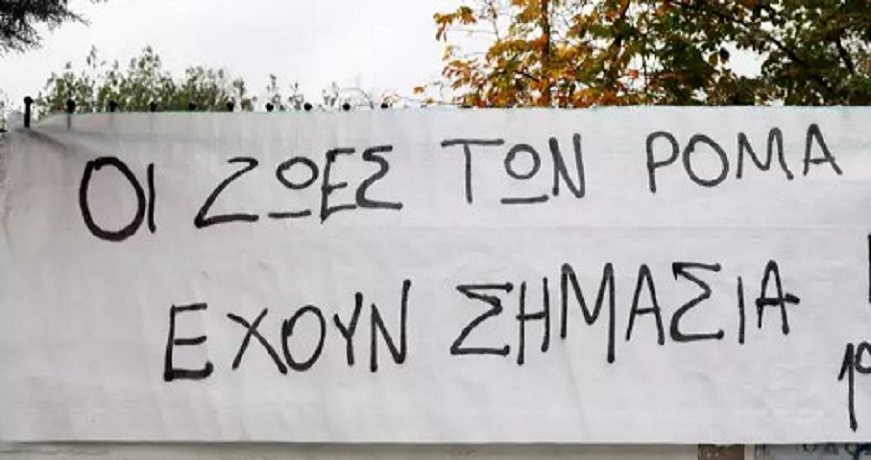 ΟΙ ΖΩΕΣ ΤΩΝ ΡΟΜΑ
ΕΧΟΥΝ ΣΗΜΑΣΙΑ